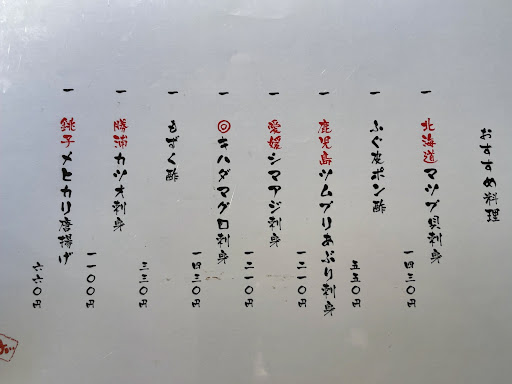 おすすめ料理
一 北海道マツブ貝刺身 一四三〇円
一 ふぐ皮ポン酢 五五〇円
一 鹿児島ツムブリあぶり刺身 一二一〇円
一 愛媛シマアジ刺身 一二一〇円
一 ◎キハダマグロ刺身 一四三〇円
一 もずく酢 三三〇円
一 勝浦カツオ刺身 一一〇〇円
一 銚子メヒカリ唐揚げ 六六〇円